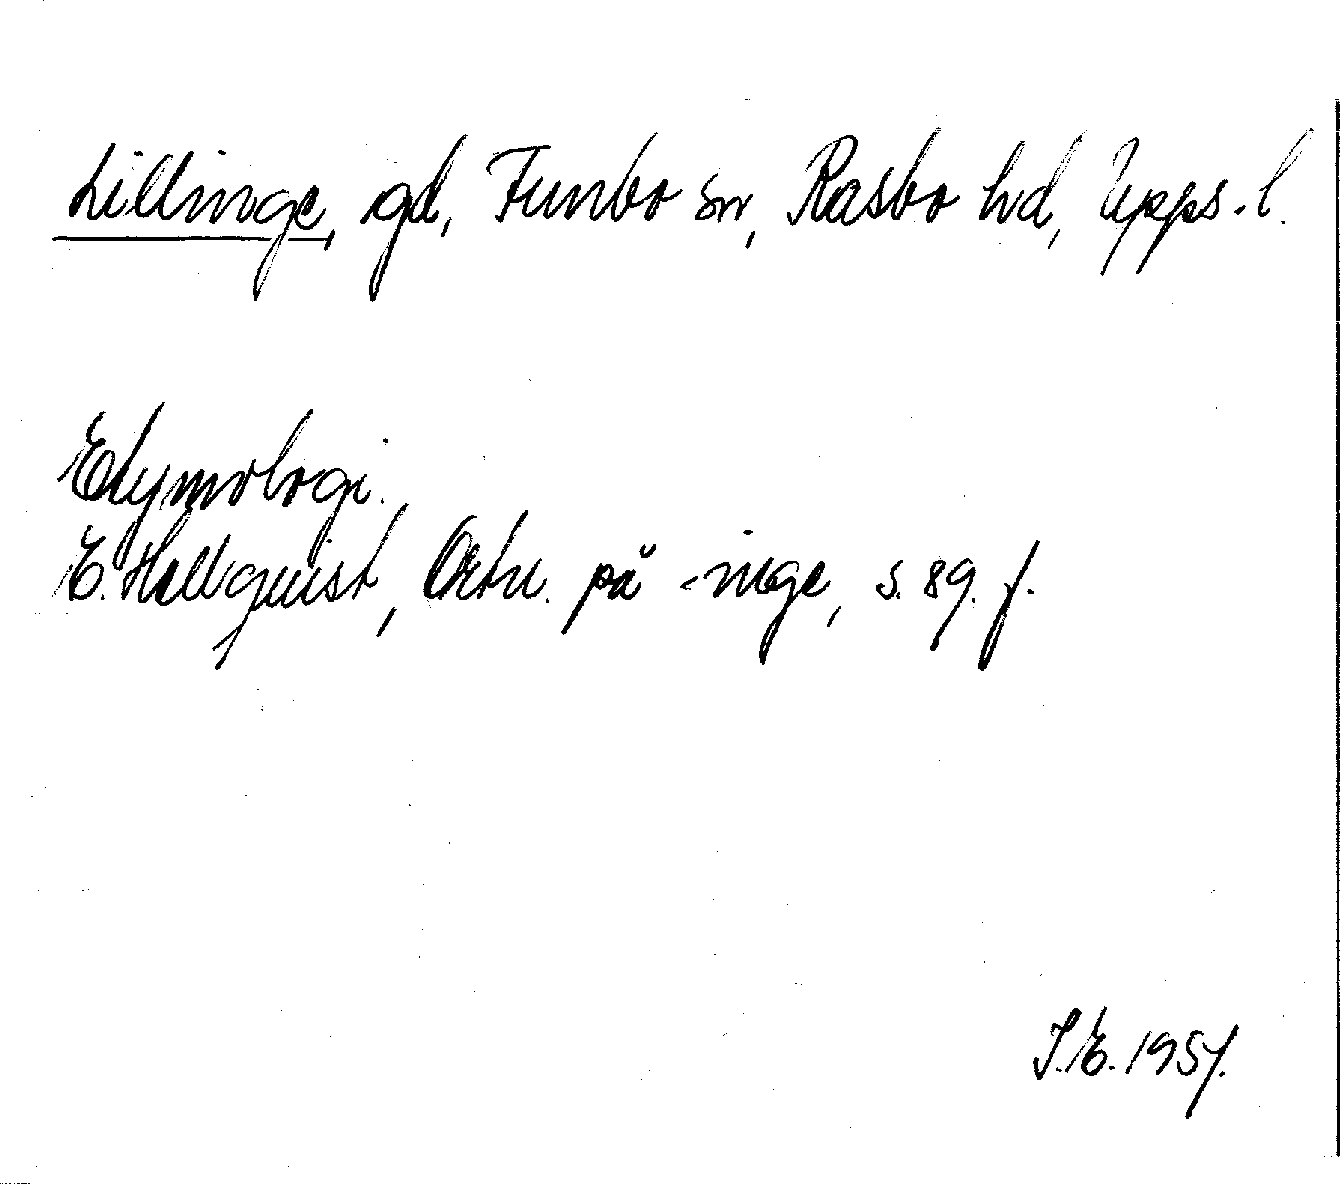 Lillinge, gd, Funbo sn, Rasbo hd, Upps. l.
Etymologi.
E. Hellquist, Ortn. på -inge, s. 89. f.
I.E. 1957.